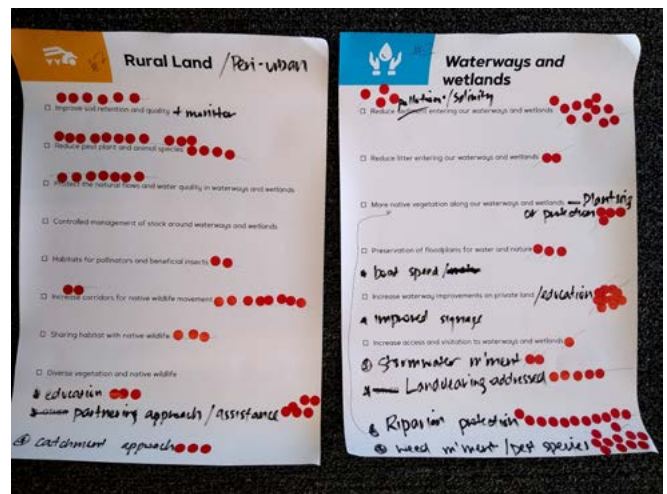 Rural Land / Peri-urban
Improve soil retention and quality + monitor
Reduce pest plant and animal species
Protect the natural flows and water quality in waterways and wetlands
Controlled management of stock around waterways and wetlands
Habitats for pollinators and beneficial insects
Increase corridors for native wildlife movement
Sharing habitat with native wildlife
Diverse vegetation and native wildlife
education
partnering approach / assistance
catchment approach
Waterways and
wetlands
pollution / Salinity
Reduce sediment entering our waterways and wetlands
Reduce litter entering our waterways and wetlands
More native vegetation along our waterways and wetlands — Planting
or protection
Preservation of floodplains for water and nature
boat speed /
Increase waterway improvements on private land / education
improved signage
Increase access and visitation to waterways and wetlands
Stormwater m'ment
Landclearing addressed
Riparian protection
weed m'ment / pest species